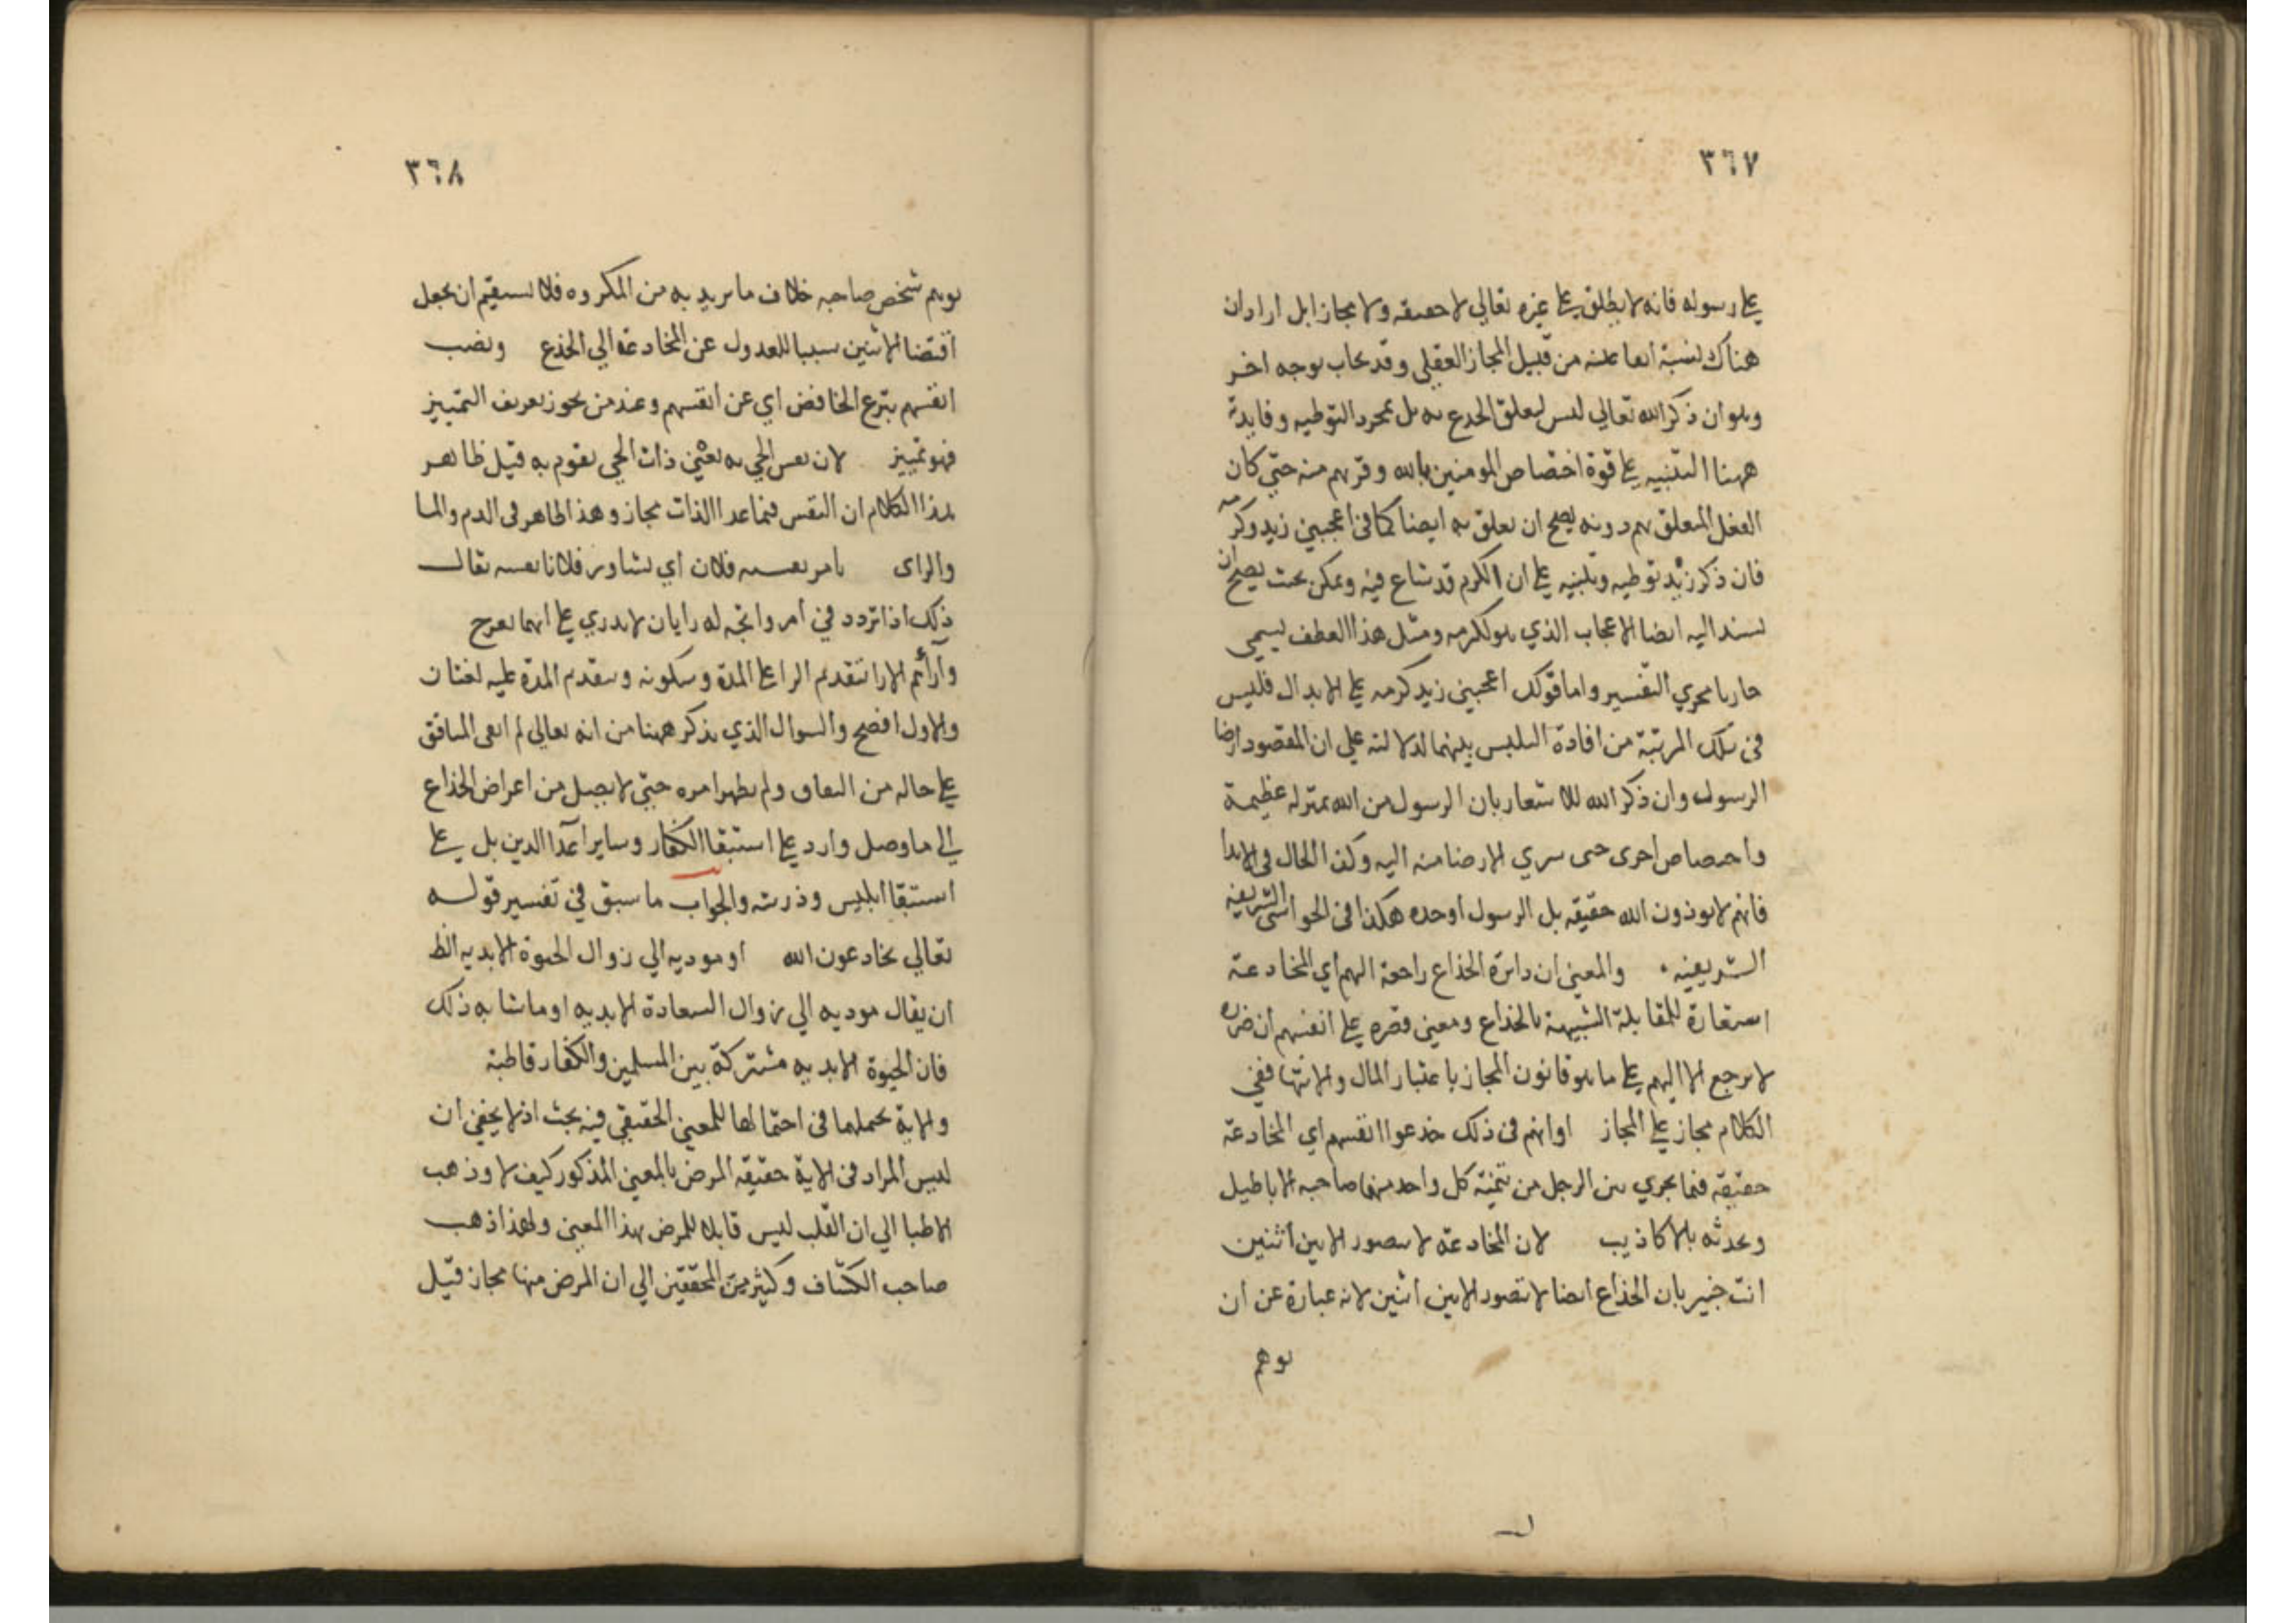 ٣٦٧
علي رسوله فانه لا يطلق علي غيره تعالي لا حقيقه ولا مجازا بل اراد ان
هناك لنسبة ايقاعيه من قبيل المجاز العقلي وقد يجاب بوجه اخر
وهو ان ذكر الله تعالي ليس لتعلق الخدع به بل لمجرد التوطيه وفايدة
ههنا التنبيه علي قوة اختصاص المومنين بالله وقربهم منه حتي كان
الفعل المتعلق بهم دونه يصح ان يعلق به ايضا كما في اعجبني زيد وكرمه
فان ذكر زيد توطيه وتنبيه علي ان الكرم قد شاع فيه وتمكن بحيث يصح ان
يسند اليه ايضا الاعجاب الذي هو لكرمه ومثل هذا العطف يسمي
جاريا مجري التفسير واما قولك اعجبني زيد كرمه علي الابدال فليس
في تلك المرتبة من افادة التلبس بينهما لدلالته علي ان المقصود ارضا
الرسول وان ذكر الله للاشعار بان الرسول من الله بمنزله عظيمة
واختصاص احري حتي سري الارضا منه اليه وكذا الحال في الايذا
فانهم لا يوذون الله حقيقه بل الرسول وحده هكذا في الحواشي الشريفية
الشريفيه والمعني ان دايرة الخداع راجعة اليهم اي المخادعة
استعارة للمقابلة الشبيهة بالخداع ومعني قصره علي انفسهم ان ضرره
لا يرجع الا اليهم علي ما هو قانون المجاز باعتبار المال والانتها ففي
الكلام مجاز علي المجاز او انهم في ذلك خدعوا انفسهم اي المخادعة
حقيقه فيما يجري بين الرجل من تمنية كل واحد منهما صاحبه الاباطيل
وتحدثه بالاكاذيب لان المخادعة لا يتصور الا بين اثنين
انت خبير بان الخداع ايضا لا يتصور الا بين اثنين لانه عبارة عن ان
يوهم
٣٦٨
يوهم شخص صاحبه خلاف ما يريد به من المكروه فلا يستقيم ان يجعل
اقتضا الاثنين سببا للعدول عن المخادعة الي الخدع ونصب
انفسهم بنزع الخافض اي عن انفسهم وعند من يجوز تعريف التمييز
فهو تمييز لان نفس الحي به يعني ذات الحي يقوم به قيل ظاهر
هذا الكلام ان النفس فيما عدا الذات مجاز وهذا الظاهر في الدم والما
والراي يامر نفسه فلان اي يشاور فلانا نفسه يقال
ذلك اذا تردد في امر واتجه له رايان لا يدري علي ايهما يعرج
وارائهم الارا بتقديم الرا علي المدة وسكونه وبتقديم المدة عليه لغتان
والاول افصح والسوال الذي يذكر ههنا من انه تعالي لم ابقي المنافق
علي حاله من النفاق ولم يظهر امره حتي لا يصل من اغراض الخداع
الي ما وصل وارد علي استبقا الكفار وساير اعدا الدين بل علي
استبقا ابليس وذريته والجواب ما سبق في تفسير قوله
تعالي يخادعون الله او موديه الي زوال الحيوة الابديه الظ
ان يقال موديه الي زوال السعادة الابديه او ما شابه ذلك
فان الحيوة الابديه مشتركة بين المسلمين والكفار قاطبة
والاية تحملهما في احتمالها للمعني الحقيقي فيه بحث اذ لا يخفي ان
ليس المراد في الاية حقيقه المرض بالمعني المذكور كيف لا وذهب
الاطبا الي ان القلب ليس قابلا للمرض بهذا المعني ولهذا ذهب
صاحب الكشاف وكثير من المحققين الي ان المرض منها مجاز قيل